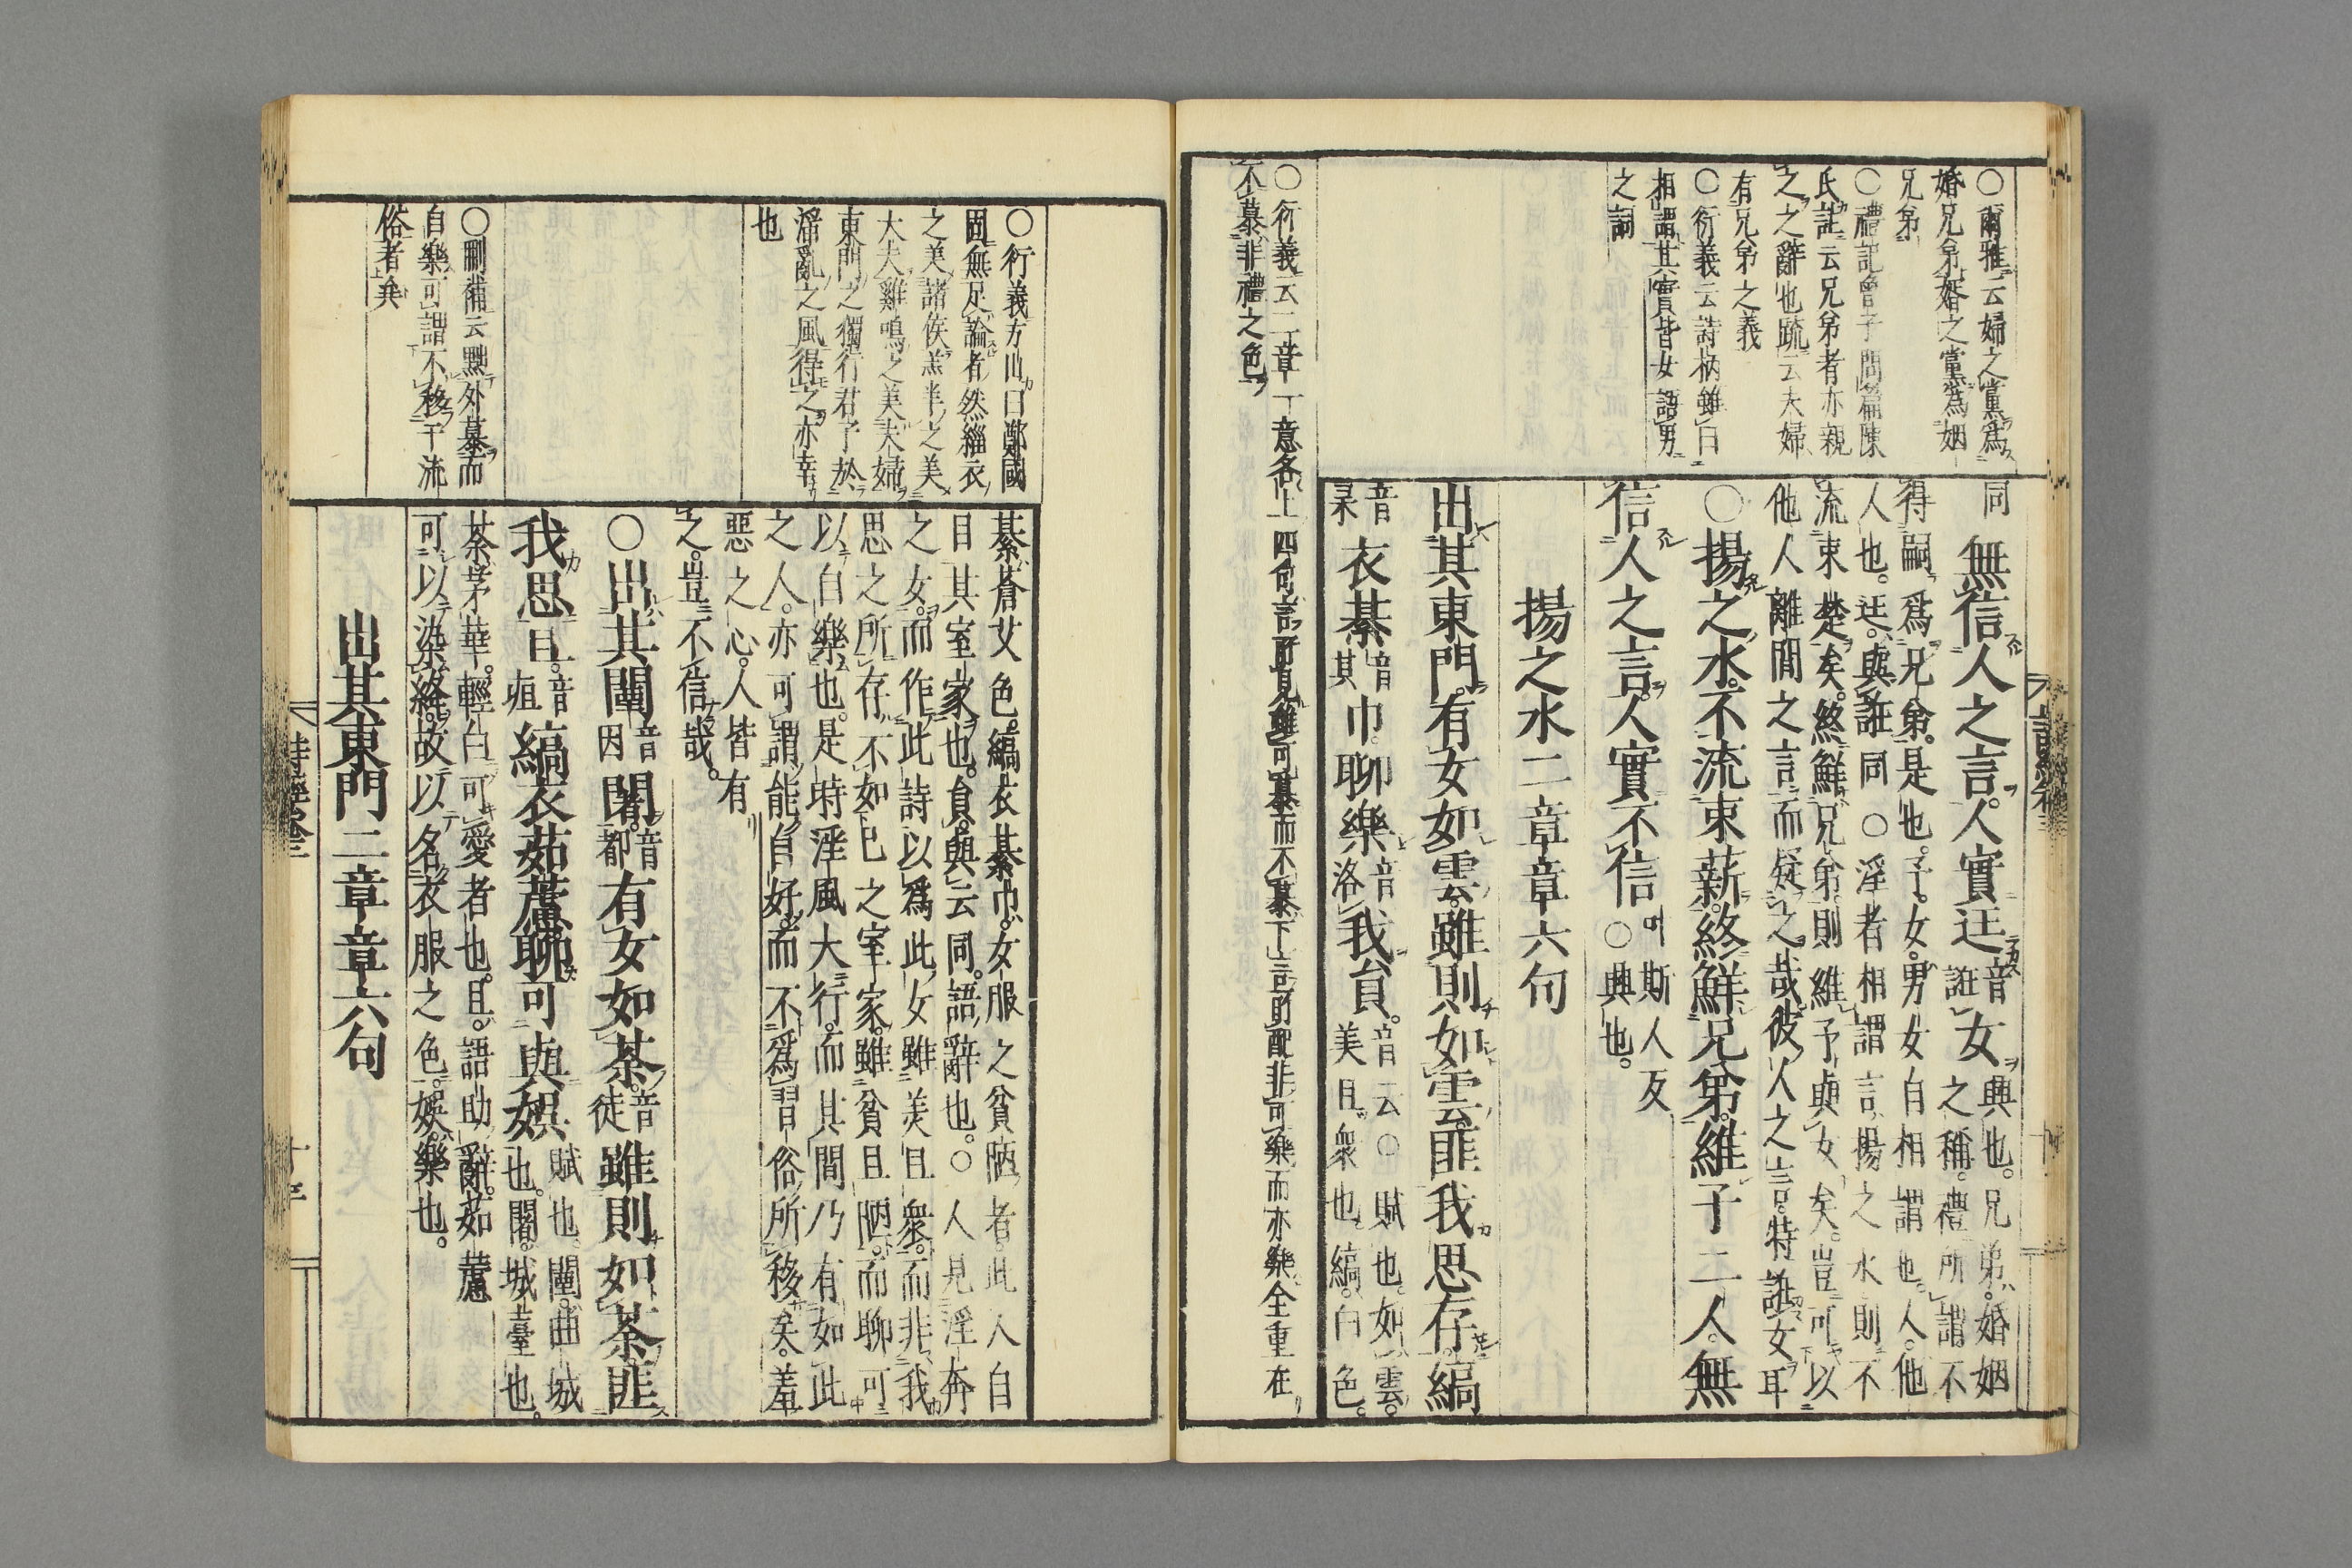 ○爾雅云婦之黨爲
婚兄弟婿之黨爲姻
兄弟
○禮記曾子問篇陳
氏註云兄弟者亦親
之之辭也疏云夫婦
有兄弟之義
○衍義云詩柄雖曰
相謂其實皆女語男
之詞
同無信人之言。人實迋音誑女興也。兄弟。婚姻之稱。禮所謂。不
得嗣爲兄弟。是也。予女。男女自相謂也。人。他
人也。迋。與誑同○淫者相謂言揚之水則不
流束楚矣。終鮮兄弟。則維予與女矣。豈可以
他人離間之言。而疑之哉。彼人之言。特誑女耳
○揚之水。不流束薪。終鮮兄弟。維予二人。無
信人之言。人實不信叶斯人反○興也。
揚之水二章章六句
出其東門。有女如雲。雖則如雲。匪我思存。縞
音杲衣綦音其巾。聊樂音洛我員。音云○賦也。如雲。美且衆也。縞。白色。
○衍義云二章一意各上四句言所見雖可慕而不慕下言所配非可樂而亦樂全重在
不慕非禮之色
○衍義方山曰鄭國
固無足論者然緇衣
之美諸侯羔羊之美
大夫雞鳴之美夫婦
東門之獨行君子於
淫亂之風得之亦幸
也
○刪補云黙外慕而
自樂可謂不移于流
俗者矣
綦。蒼艾色。縞衣綦巾。女服之貧陋者。此人自
目其室家也。員。與云同。語辭也。○人見淫奔
之女。而作此詩以爲此女雖美且衆。而非我
思之所存。不如已之室家。雖貧且陋。而聊可
以自樂也。是時淫風大行。而其間乃有如此
之人。亦可謂能自好。而不爲習俗所移矣。羞
惡之心。人皆有
之。豈不信哉。
○出其闉音因闍。音都有女如荼。音徒雖則如荼。匪
我思且。音疽縞衣茹藘。聊可與娛賦也。闉。曲城也。闍。城臺也。
荼。茅華。輕白可愛者也。且。語助辭。茹藘
可以染絳。故以名衣服之色。娛。樂也。
出其東門二章章六句